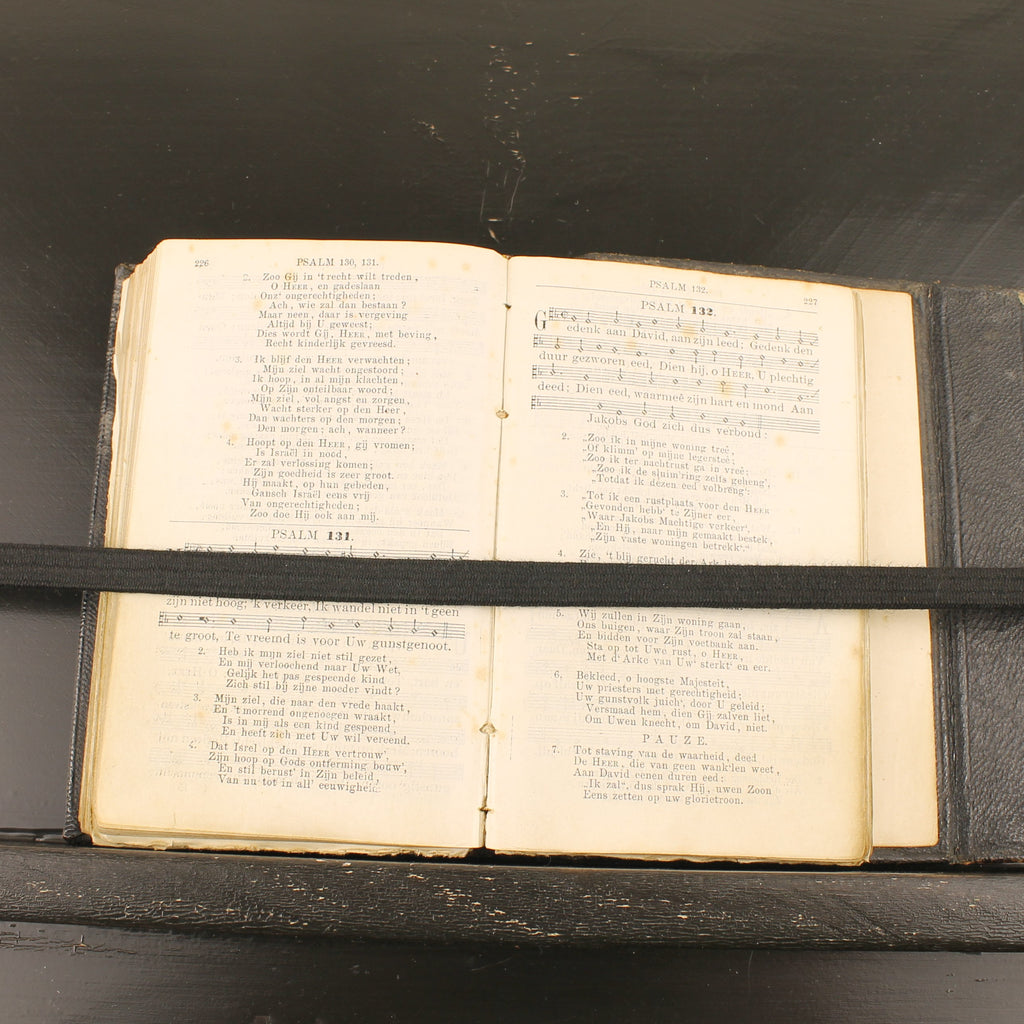 226
PSALM 130, 131.
2. Zoo Gij in 't recht wilt treden,
O HEER, en gadeslaan
Onz' ongerechtigheden;
Ach, wie zal dan bestaan?
Maar neen, daar is vergeving
Altijd bij U geweest;
Dies wordt Gij, HEER, met beving,
Recht kinderlijk gevreesd.
3. Ik blijf den HEER verwachten;
Mijn ziel wacht ongestoord;
Ik hoop, in al mijn klachten,
Op Zijn onfeilbaar woord;
Mijn ziel, vol angst en zorgen,
Wacht sterker op den Heer,
Dan wachters op den morgen;
Den morgen; ach, wanneer?
4. Hoopt op den HEER, gij vromen;
Is Israël in nood,
Er zal verlossing komen;
Zijn goedheid is zeer groot.
Hij maakt, op hun gebeden,
Gansch Israël eens vrij
Van ongerechtigheden;
Zoo doe Hij ook aan mij.
PSALM 131.
zijn niet hoog; 'k verkeer, Ik wandel niet in 't geen
te groot, Te vreemd is voor Uw gunstgenoot.
2. Heb ik mijn ziel niet stil gezet,
En mij verloochend naar Uw Wet,
Gelijk het pas gespeende kind
Zich stil bij zijne moeder vindt?
3. Mijn ziel, die naar den vrede haakt,
En 't morrend ongenoegen wraakt,
Is in mij als een kind gespeend,
En heeft zich met Uw wil vereend.
4. Dat Isrel op den HEER vertrouw',
Zijn hoop op Gods ontferming bouw',
En stil berust' in Zijn beleid,
Van nu tot in all' eeuwigheid.
PSALM 132.
227
PSALM 132.
Gedenk aan David, aan zijn leed; Gedenk den
duur gezworen eed, Dien hij, o HEER, U plechtig
deed; Dien eed, waarmeê zijn hart en mond Aan
Jakobs God zich dus verbond:
2. „Zoo ik in mijne woning treê,
„Of klimm' op mijne legersteê;
„Zoo ik ter nachtrust ga in vreê;
„Zoo ik de sluim'ring zelfs geheng',
„Totdat ik dezen eed volbreng':
3. „Tot ik een rustplaats voor den HEER
„Gevonden hebb' te Zijner eer,
„Waar Jakobs Machtige verkeer',
„En Hij, naar mijn gemaakt bestek,
„Zijn vaste woningen betrekk'."
4. Zie, 't blij gerucht der Ark
5. Wij zullen in Zijn woning gaan,
Ons buigen, waar Zijn troon zal staan,
En bidden voor Zijn voetbank aan.
Sta op tot Uwe rust, o HEER,
Met d' Arke van Uw' sterkt' en eer.
6. Bekleed, o hoogste Majesteit,
Uw priesters met gerechtigheid;
Uw gunstvolk juich', door U geleid;
Versmaad hem, dien Gij zalven liet,
Om Uwen knecht, om David, niet.
PAUZE.
7. Tot staving van de waarheid, deed
De HEER, die van geen wank'len weet,
Aan David eenen duren eed:
„Ik zal", dus sprak Hij, uwen Zoon
Eens zetten op uw glorietroon.